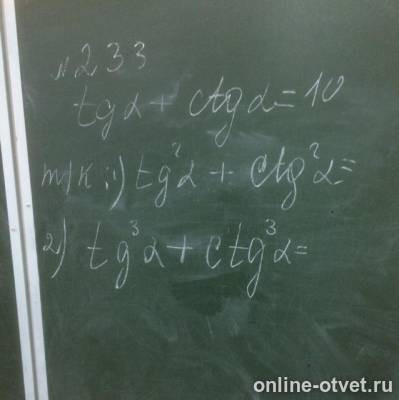 №233
tgα + ctgα = 10
т/к: 1) tg²α + ctg²α =
2) tg³α + ctg³α =
online-otvet.ru